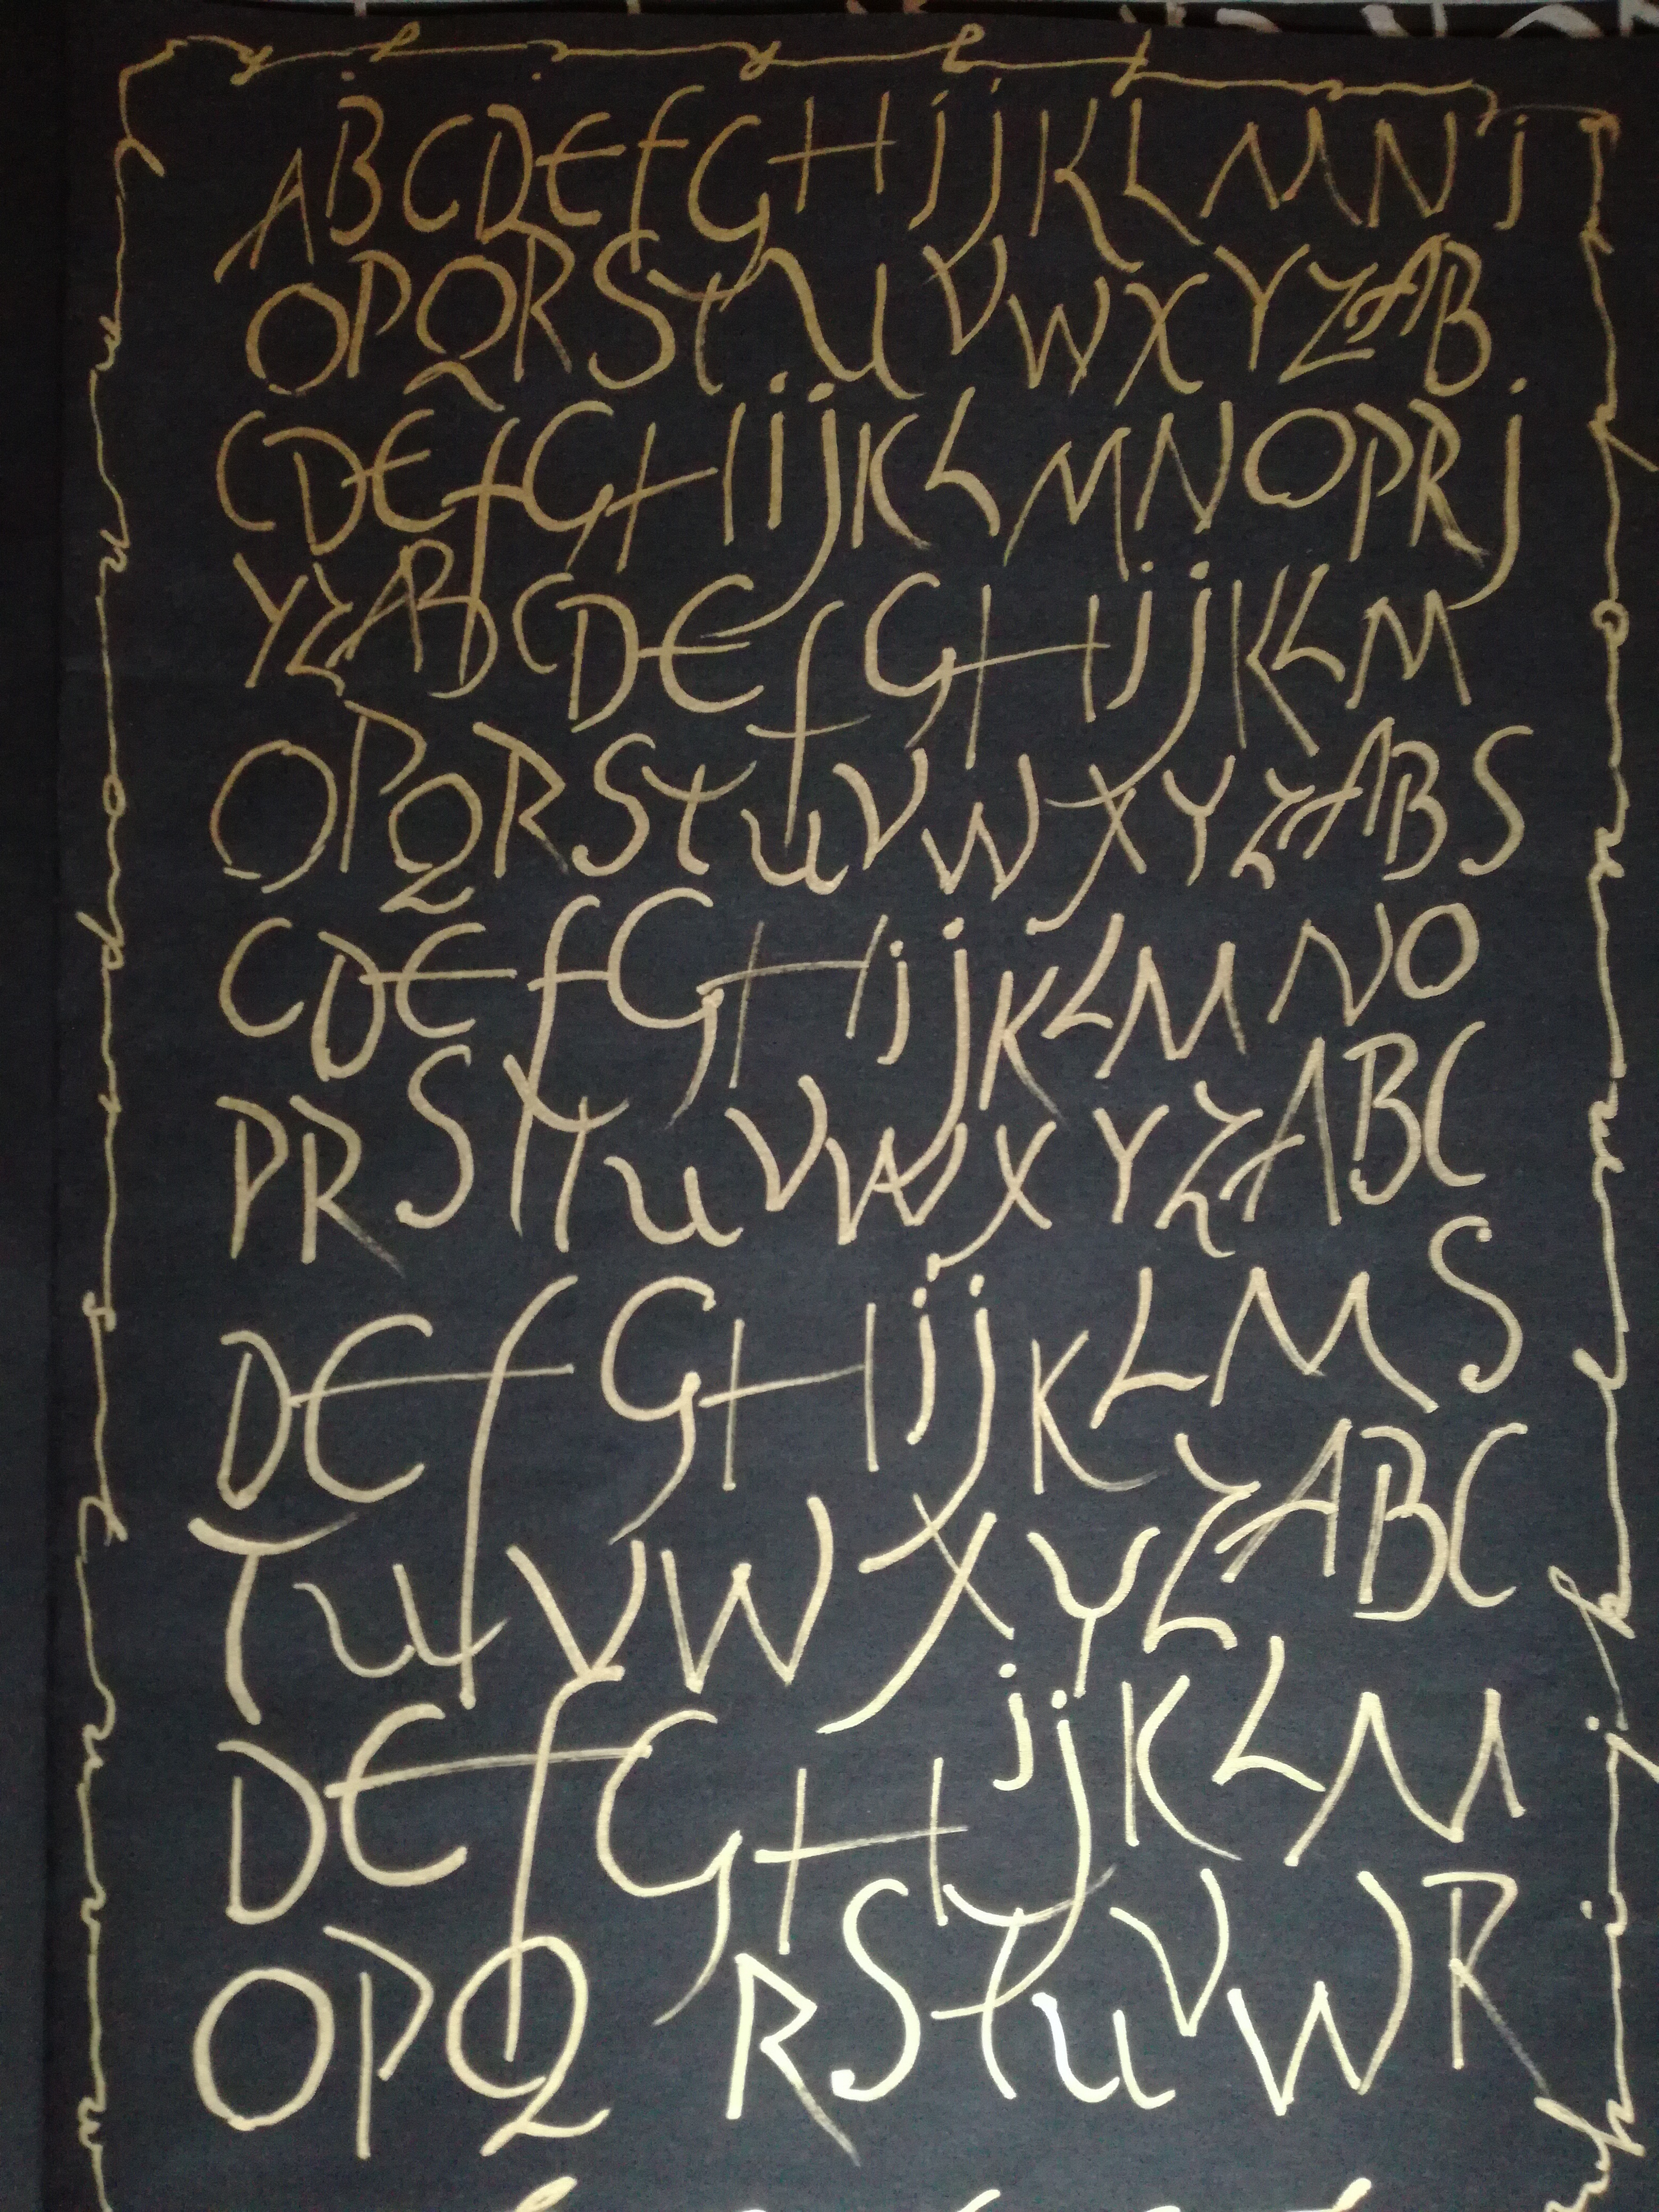 A B C D E f G H i j K L M N j
O P Q R S t U V W X Y Z A B
C D E f G H i j K L M N O P R j
Y Z A B C D E f G H i j K L M
O P Q R S t u V W X Y Z A B S
C D E f G H i j K L M N O
P R S Y t u V W X Y Z A B C
D E f G H i j K L M S
T u V W X Y Z A B C
D E f G H i j K L M
O P Q R S t u V W R